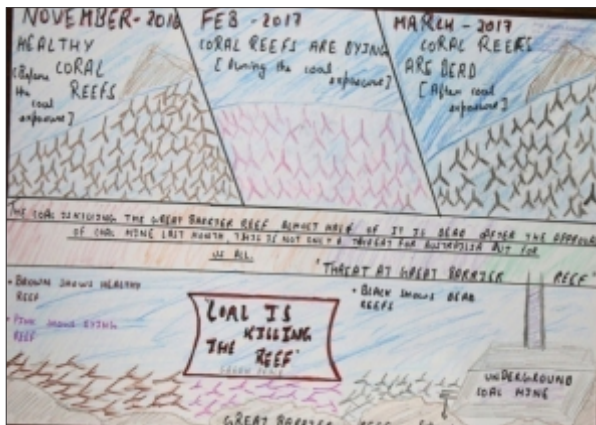 NOVEMBER - 2016
HEALTHY
CORAL
REEFS
[Before
the
coal
exposure]
FEB - 2017
CORAL REEFS ARE DYING
[During the coal exposure]
MARCH - 2017
CORAL REEFS
ARE DEAD
[After coal
exposure]
THE COAL IS KILLING THE GREAT BARRIER REEF ALMOST HALF OF IT IS DEAD AFTER THE APPROVAL
OF COAL MINE LAST MONTH, THIS IS NOT ONLY A THREAT FOR AUSTRALIA BUT FOR
US ALL.
"THREAT AT GREAT BARRIER REEF"
• BROWN SHOWS HEALTHY
REEF
• PINK SHOWS DYING
REEF
COAL IS
KILLING
THE REEF
• BLACK SHOWS DEAD
REEFS
UNDERGROUND
COAL MINE
GREAT BARRIER